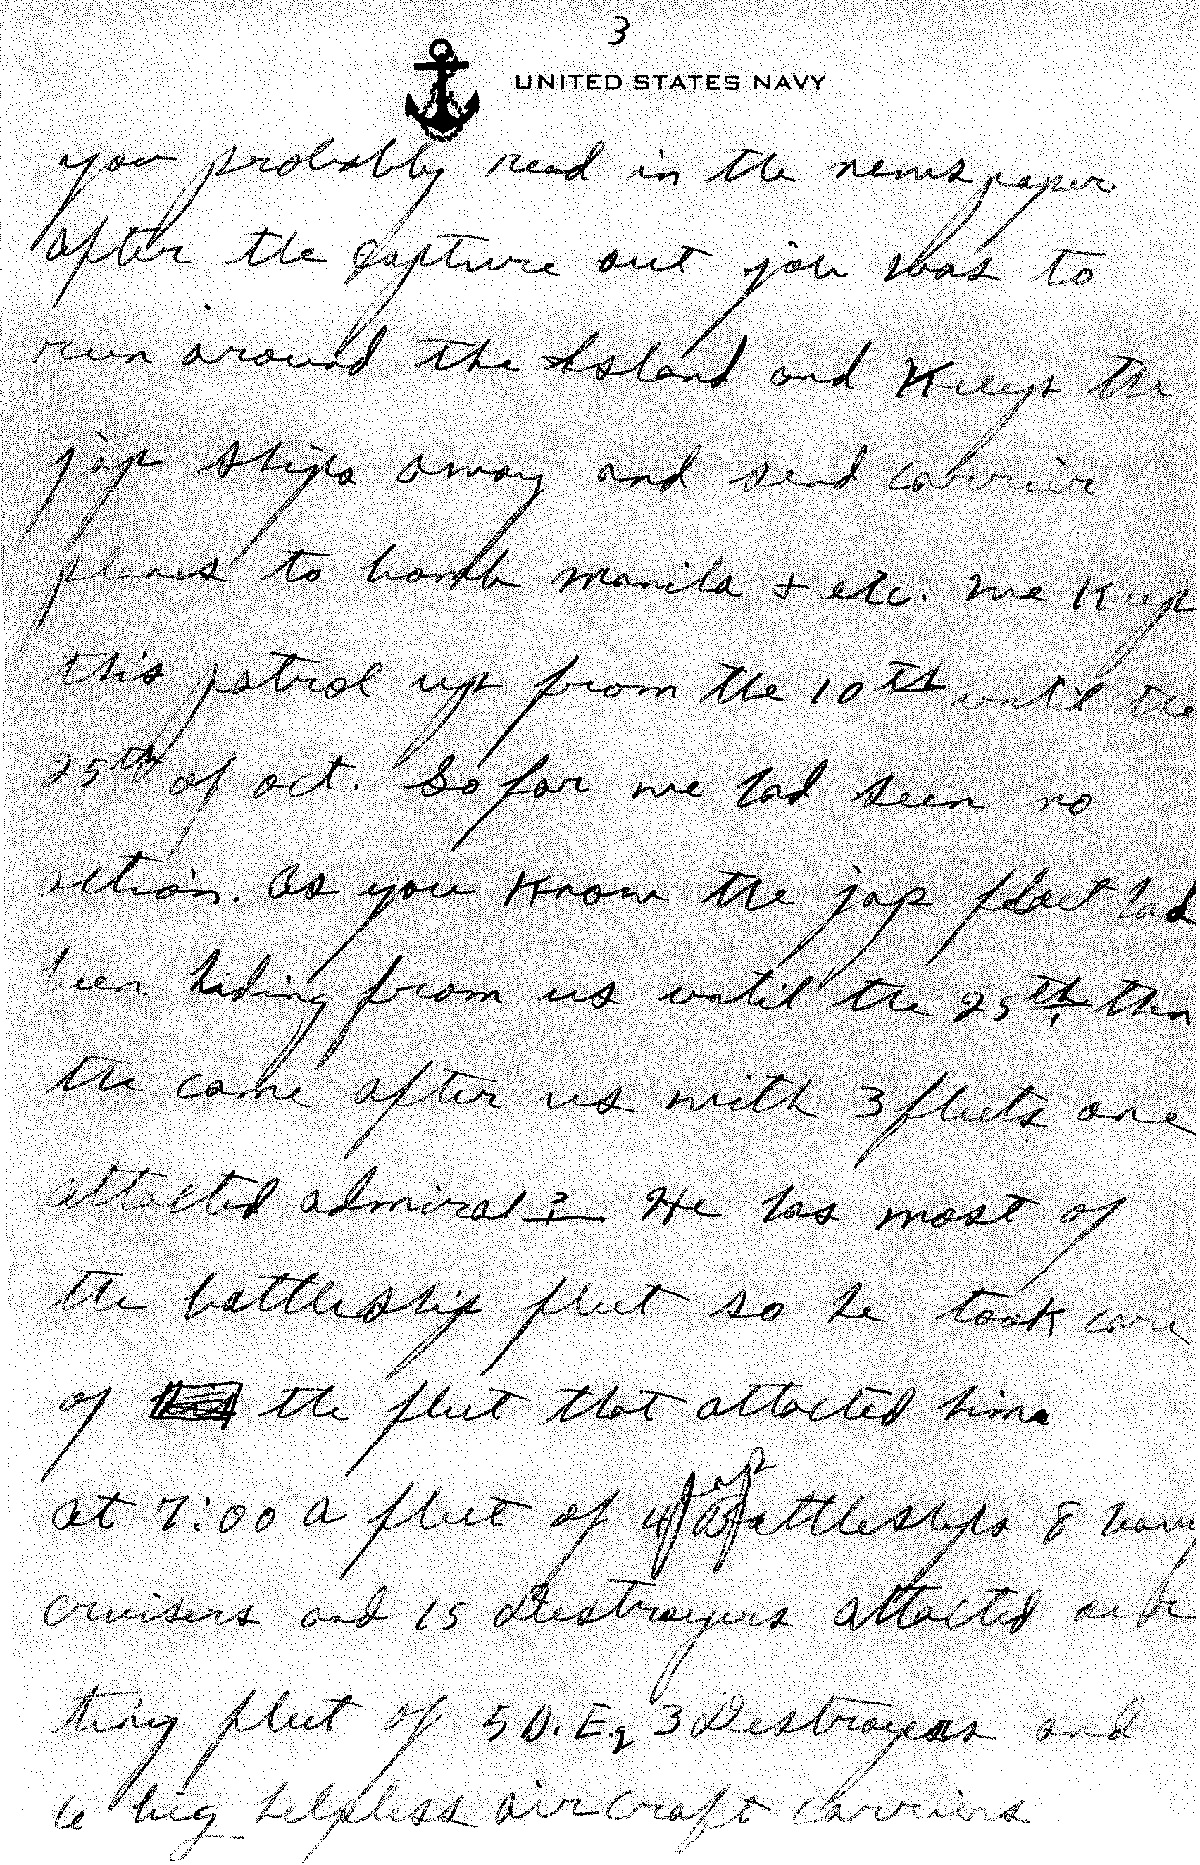 3
UNITED STATES NAVY
you probably read in the newspaper
after the capture out job was to
run around the Island and Keep the
jap ships away and send carrier
planes to bomb manila + etc. we Kept
this patrol up from the 10th until the
25th of oct. So far we had seen no
action. As you Know the jap fleet had
been hiding from us until the 25th. than
the came after us with 3 fleets one
attacted admiral ? He has most of
the battleship fleet so he took care
of the fleet that attacted him
at 7:00 a fleet of 4 jap Battleships 8 heavy
cruisers and 15 Destroyers attacted our
tiny fleet of 5 D.E, 3 Destroyers and
6 big helpless aircraft carriers